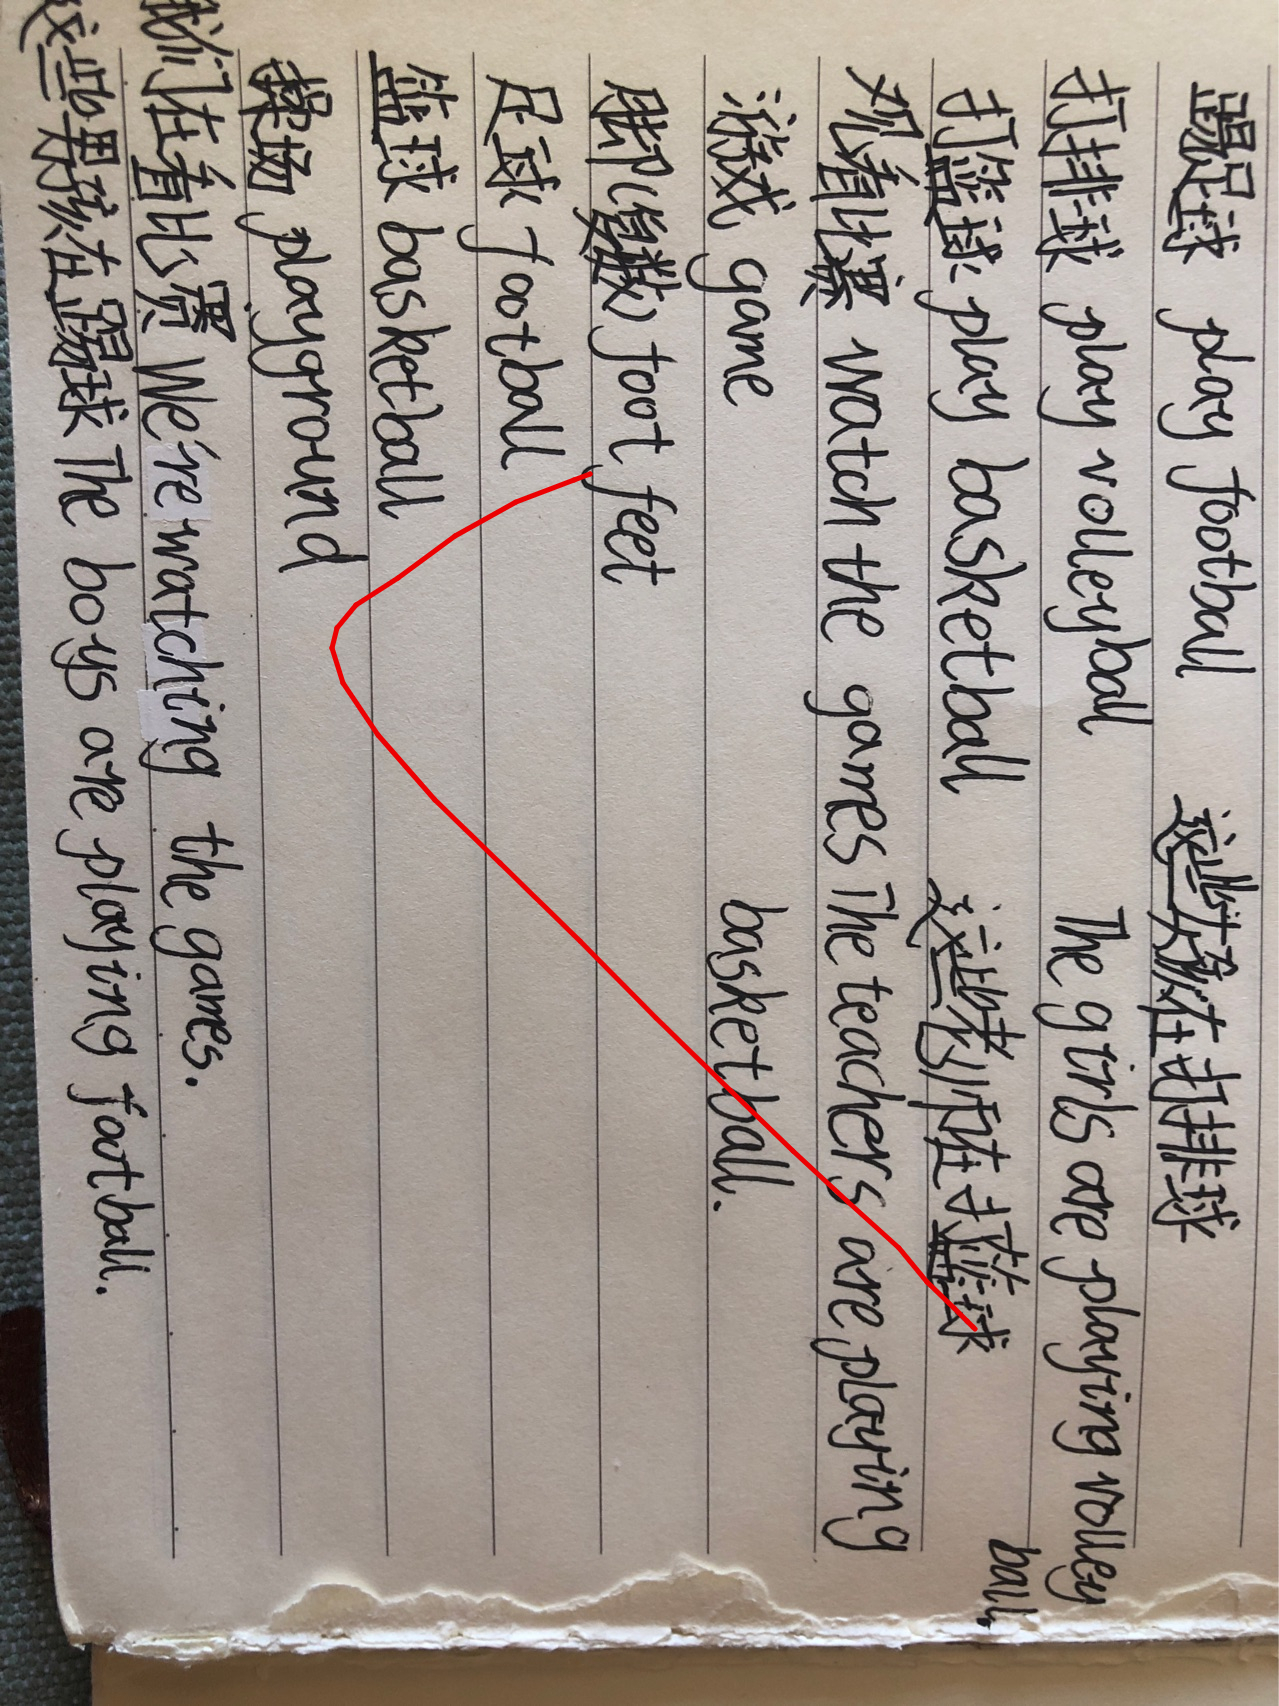 踢足球 play football 这些女孩在打排球
打排球 play volleyball The girls are playing volley
打篮球 play basketball 这些老师们在打篮球 ball.
观看比赛 watch the games The teachers are playing
游戏 game basketball.
脚(复数) foot feet
足球 football
篮球 basketball
操场 playground
我们在看比赛 We're watching the games.
这些男孩在踢球 The boys are playing football.